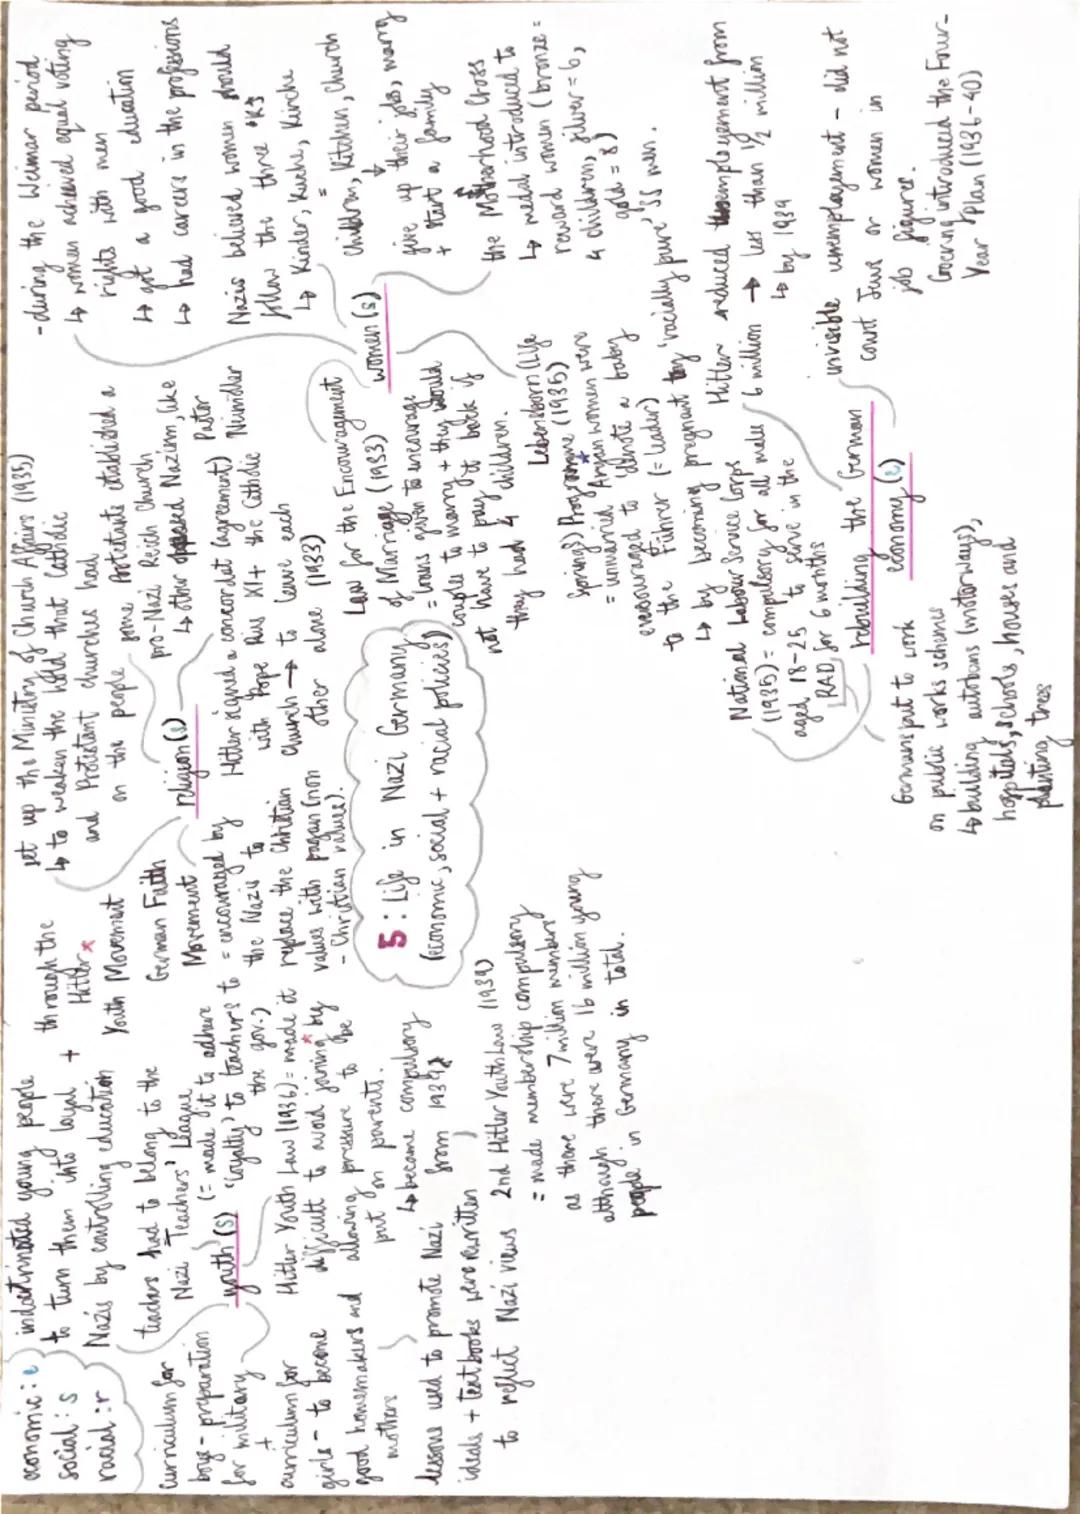 economic : e
social : s
racial : r
indoctrinated young people
to turn them into loyal +
Nazis by controlling education
through the
Hitler *
Youth Movement
teachers had to belong to the
Nazi Teachers' League
(= made it to adhere
'loyalty' to teachers to
the gov.)
youth (s)
curriculum for
boys - preparation
for military
+
curriculum for
girls - to become
good homemakers and
mothers
lessons used to promote Nazi
ideals + textbooks were rewritten
to reflect Nazi views
Hitler Youth Law (1936) = made it
difficult to avoid joining * by
allowing pressure to be
put on parents.
↳ became compulsory
from 1939
2nd Hitler Youth Law (1939)
= made membership compulsory
as there were 7 million members
although there were 16 million young
people in Germany in total.
set up the Ministry of Church Affairs (1935)
↳ to weaken the hold that Catholic
and Protestant churches had
on the people
religion (s)
some Protestants established a
pro-Nazi Reich Church
↳ other opposed Nazism, like
Pastor
Niemöller
German Faith
Movement
= encouraged by
the Nazis to
replace the Christian
values with pagan (non
- Christian values).
Hitler signed a concordat (agreement)
with Pope Pius XI + the Catholic
Church → to leave each
other alone (1933)
5 : Life in Nazi Germany
(economic, social + racial policies)
- during the Weimar period
↳ women achieved equal voting
rights with men
↳ got a good education
↳ had careers in the professions
Nazis believed women should
follow the three 'K's
↳ Kinder, Kuche, Kirche
=
Children, Kitchen, Church
↓
give up their jobs, marry
+ start a family
women (s)
the Motherhood Cross
↳ medal introduced to
reward women (bronze =
4 children, silver = 6,
gold = 8)
Law for the Encouragement
of Marriage (1933)
= loans given to encourage
couples to marry + they would
not have to pay it back if
they had 4 children.
Lebensborn (Life
Springs) Programme (1935)
= unmarried Aryan women were
encouraged to 'donate a baby
to the Führer (= leader)
↳ by becoming pregnant by 'racially pure' SS men.
National Labour Service Corps
(1935) = compulsory for all males
aged 18-25 to serve in the
RAD for 6 months
Hitler reduced unemployment from
6 million → less than 1/2 million
↳ by 1939
rebuilding the German
economy (e)
invisible unemployment - did not
count Jews or women in
job figures.
Goering introduced the Four-
Year Plan (1936-40)
Germans put to work
on public works schemes
↳ building autobans (motorways),
hospitals, schools, houses and
planting trees